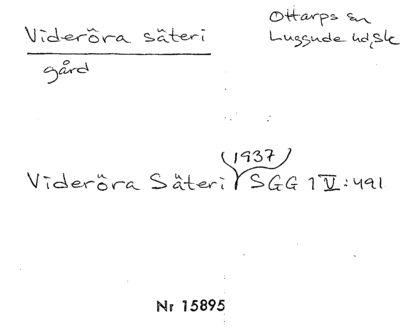 Videröra säteri
Ottarps sn
Luggude hd, Sk
gård
(1937)
Videröra Säteri SGG 1 V: 491
Nr 15895